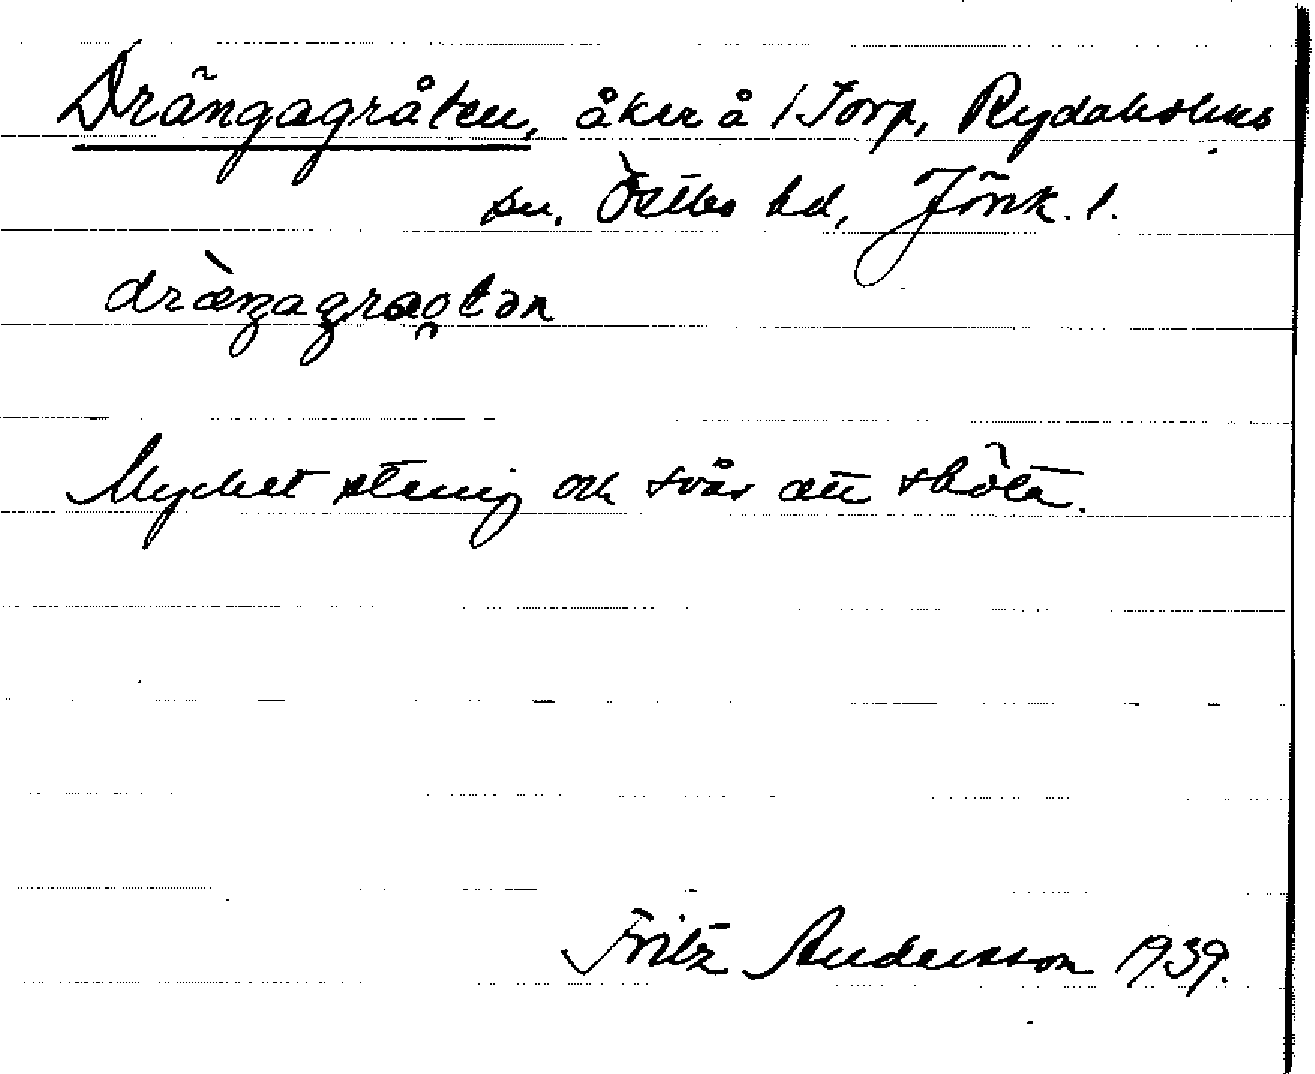 Drängagråten, åker å 1 Torp, Rydaholms
sn. Östbo hd, Jönk. l.
dræ̀ŋagraotən
Mycket stenig och svår att sköta.
Fritz Andersson 1939.